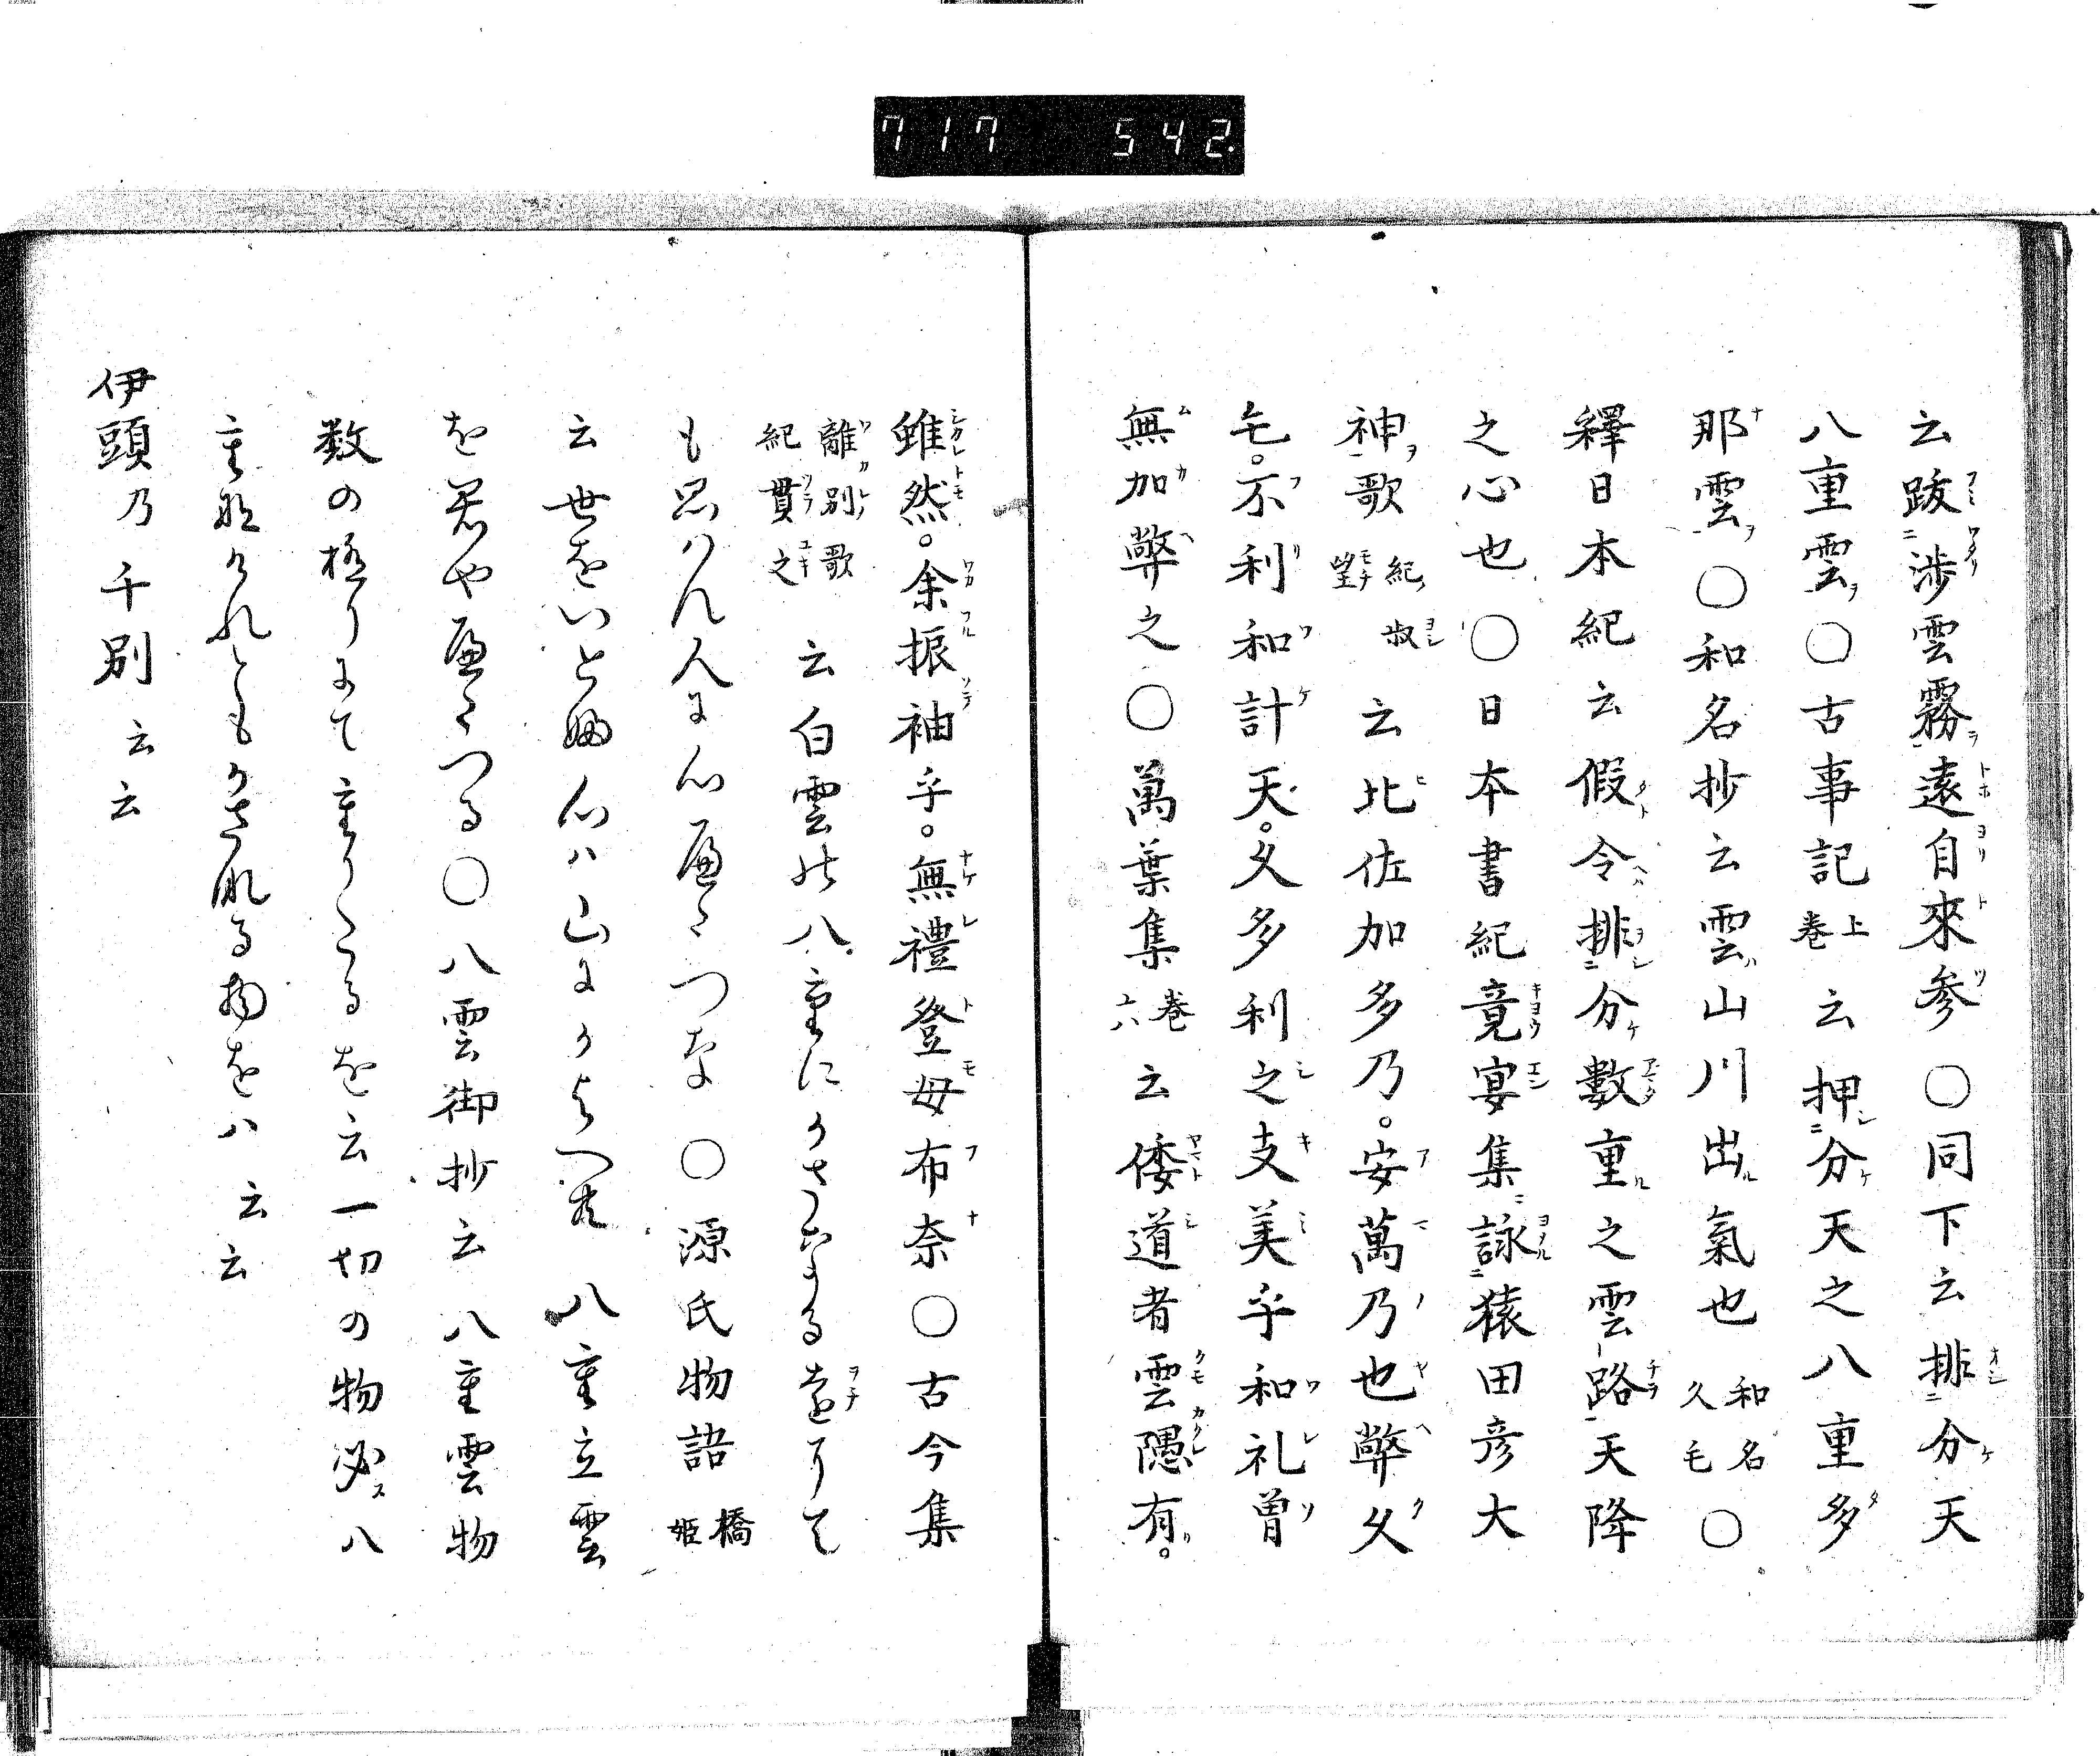 717 542.
云跋渉雲霧遠自來参〇同下云排分天
八重雲〇古事記上巻云押分天之八重多
那雲〇和名抄云雲山川出氣也和名久毛〇
釋日本紀云假令排分數重之雲路天降
之心也〇日本書紀竟宴集詠猿田彦大
神歌紀叔望云比佐加多乃。安萬乃也弊久
毛。不利和計天。久多利之支美乎和礼曽
無加弊之〇萬葉集巻六云倭道者雲隠有。
雖然。余振袖乎。無禮登母布奈〇古今集
離別歌紀貫之云白雲の八重にかさなる遠にて
も思はん人に心へたつな〇源氏物語橋姫
云世をいとふ心は山にかよへとも八重立雲
を君やへたつる〇八雲御抄云八重雲物
数の極りにて重りたるを云一切の物必ス八
重ならねともかさなる物をハ云云
伊頭乃千別云云